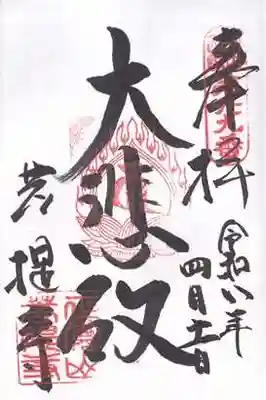 奉拝
令和八年
四月十一日
大悲殿
菩提寺